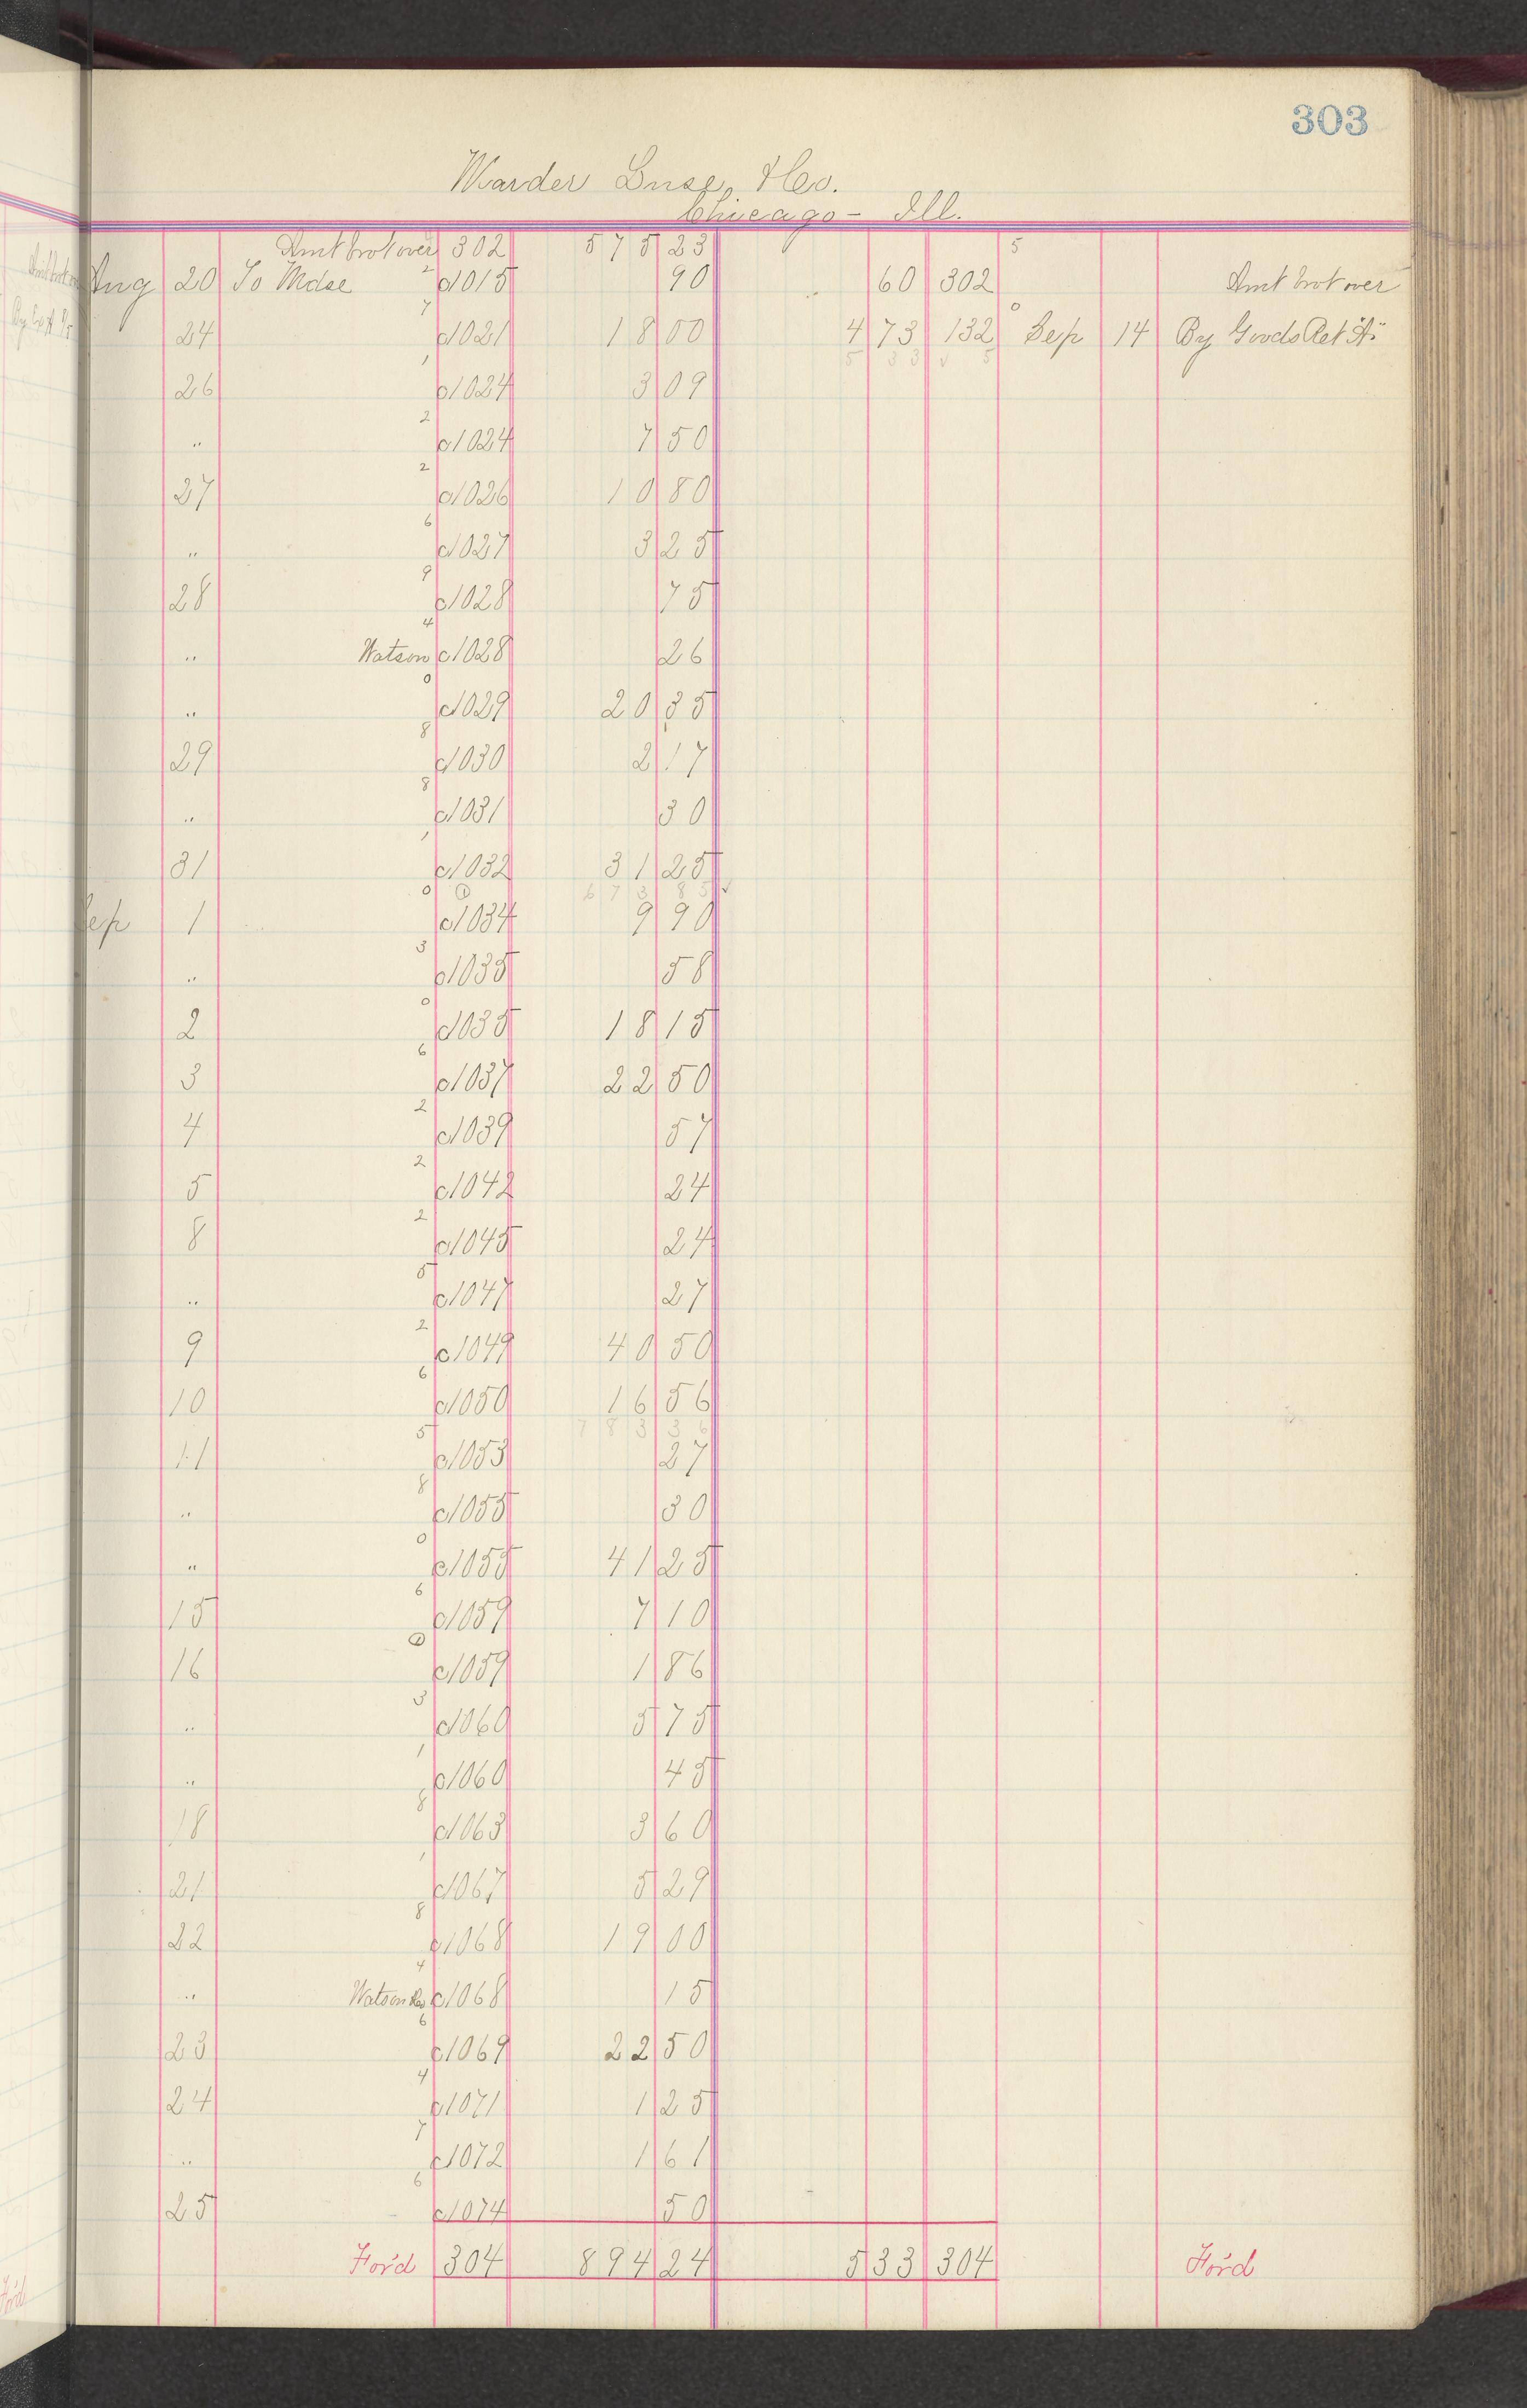 303
Warder Buse, & Co.
Chicago - Ill.
Amt brot over 302 575 23
Aug 20 To Mdse c1015 90 60 302 Amt brot over
24 c1021 18 00 4 73 132 Sep 14 By Goods Ret
5 33
26 c1024 3 09
" c1024 7 50
27 c1026 10 80
" c1027 3 25
28 c1028 75
" Watson c1028 26
" c1029 20 35
29 c1030 2 17
" c1031 30
31 c1032 31 25
673 85
Sep 1 c1034 9 90
" c1035 58
2 c1035 18 15
3 c1037 22 50
4 c1039 57
5 c1042 24
8 c1045 24
" c1047 27
9 c1049 40 50
10 c1050 16 56
783 36
11 c1053 27
" c1055 30
" c1055 41 25
15 c1059 7 10
16 c1059 1 86
" c1060 5 75
" c1060 45
18 c1063 3 60
21 c1067 5 29
22 c1068 19 00
" Watson c1068 15
23 c1069 22 50
24 c1071 1 25
" c1072 1 61
25 c1074 50
For'd 304 894 24 5 33 304 For'd